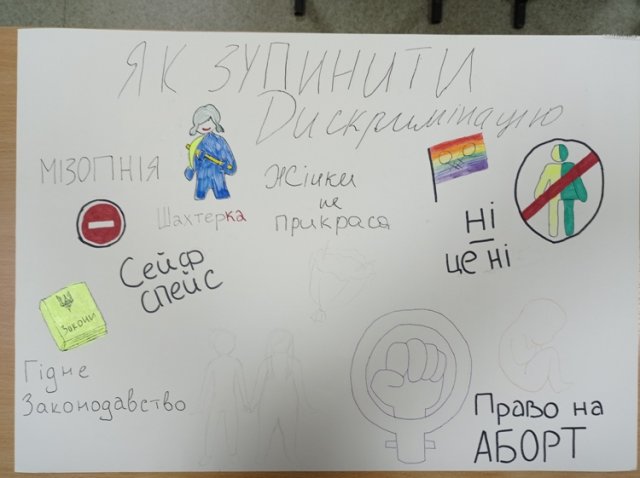 ЯК ЗУПИНИТИ
Дискримінацію
МІЗОГІНІЯ
Шахтерка
Жінки
не
прикраса
ні
це ні
Сейф
спейс
Закони
Гідне
Законодавство
Право на
АБОРТ